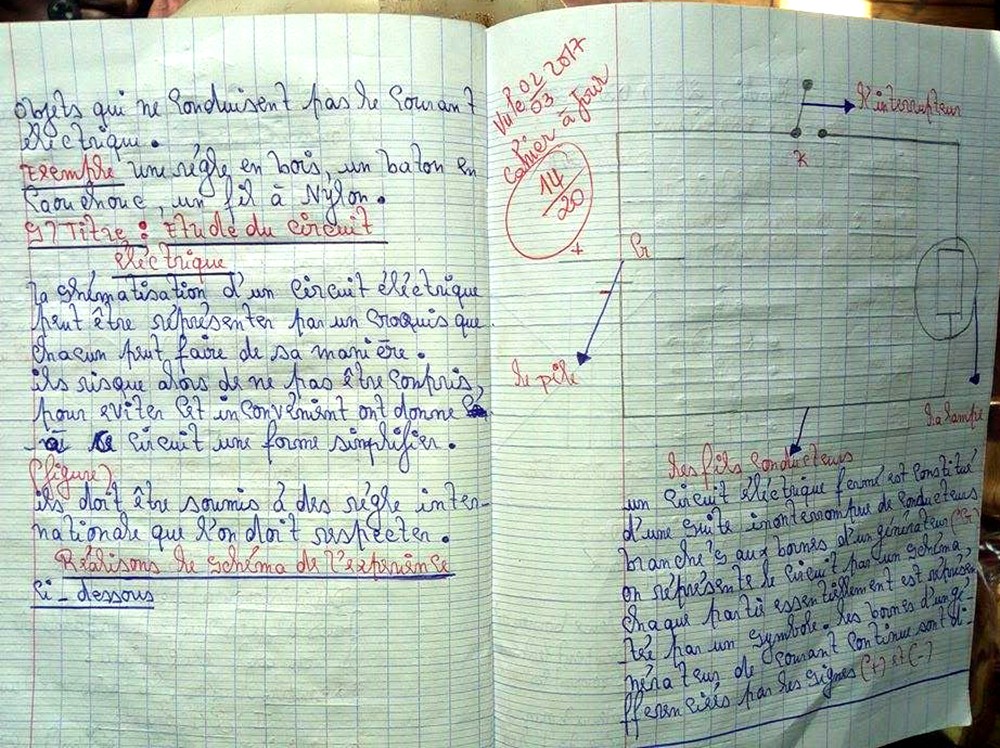 objets qui ne conduisent pas le courant
éléctrique.
Exemple une régle en bois, un baton en
Caouchouc, un fil à Nylon.
Titre : Etude du circuit
éléctrique
la schématisation d'un circuit éléctrique
peut être répresenter par un croquis que
chacun peut faire de sa manière.
ils risque alors de ne pas être compris,
pour eviter cet inconvénient ont donne
à ce circuit une forme simplifier.
(figure)
ils doit être soumis à des régle inter-
nationale que l'on doit respecter.
Réalisons le schéma de l'experience
Ci-dessous
Vu le 02 2017
03
Cahier à Jour
14
20
L'interrupteur
K
+
G
-
le pile
la lampe
les fils conducteurs
un circuit éléctrique fermé est constitué
d'une suite inonterrompue de conducteurs
branchés aux bornes d'un générateur (G)
on réprésente le circuit par un schéma,
chaque partie essentiellement est représen
tée par un symbole. les bornes d'un gé-
nérateur de courant continue sont di-
fferenciés par les signes (+) et (-)